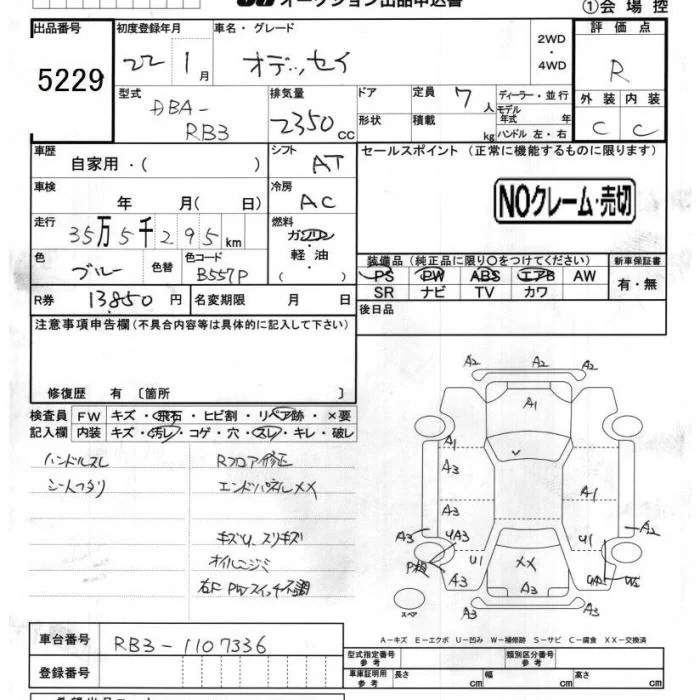 オークション出品申込書
①会場控
出品番号 初度登録年月 車名・グレード 2WD・4WD 評価点
5229 22 1月 オデッセイ R
型式 DBA-RB3 排気量 2350cc ドア 形状 定員 7人 積載 kg ディーラー・並行 モデル年式 年 ハンドル 左・右
外装 内装
C C
車歴 自家用・( ) シフト AT セールスポイント (正常に機能するものに限ります)
車検 年 月( 日) 冷房 AC NOクレーム・売切
走行 35万5千295km 燃料 ガソリン 軽油 ( )
色 ブルー 色替 色コード B557P
装備品 (純正品に限り○をつけてください) 新車保証書
PS PW ABS エアB AW 有・無
SR ナビ TV カワ
R券 13,850円 名変期限 月 日
後日品
注意事項申告欄 (不具合内容等は具体的に記入して下さい)
修復歴 有 〔箇所 〕
検査員 FW キズ・飛石・ヒビ割・リペア跡・×要
記入欄 内装 キズ・汚レ・コゲ・穴・スレ・キレ・破レ
ハンドルスレ Rフロア修正
シートヘタリ エンドパネルXX
キズU、スリキズ
オイルニジミ
右F PWスイッチ不調
A2 A2 A2 A3
A1
A1
A3
A3 A1
A3 UA3 U1 A2
P板 U1 XX
A3 A3
A3 A3
スペア
A-キズ E-エクボ U-凹み W-補修跡 S-サビ C-腐食 XX-交換済
車台番号 RB3-1107336
型式指定番号 参考 類別区分番号 参考
登録番号
車庫証明用 参考 長さ cm 幅 cm 高さ cm